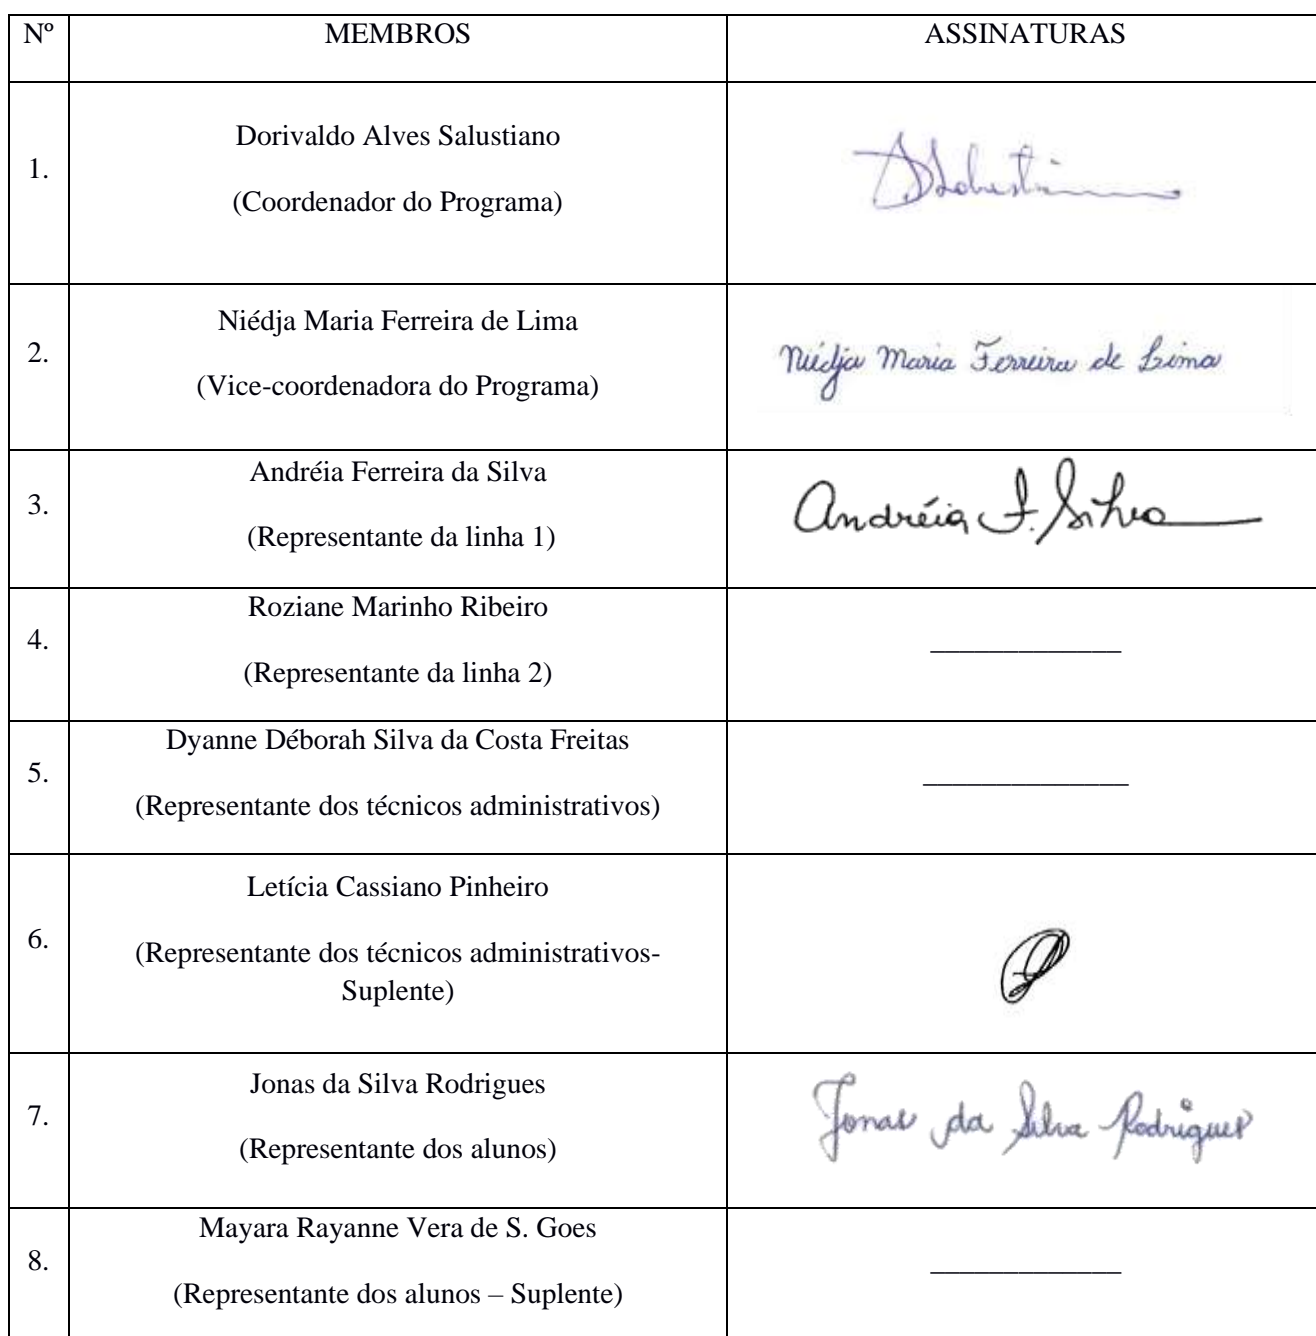 Nº MEMBROS ASSINATURAS
1. Dorivaldo Alves Salustiano
(Coordenador do Programa)
2. Niédja Maria Ferreira de Lima
(Vice-coordenadora do Programa)
Niédja Maria Ferreira de Lima
3. Andréia Ferreira da Silva
(Representante da linha 1)
Andréia F. Silva
4. Roziane Marinho Ribeiro
(Representante da linha 2)
_____________
5. Dyanne Déborah Silva da Costa Freitas
(Representante dos técnicos administrativos)
______________
6. Letícia Cassiano Pinheiro
(Representante dos técnicos administrativos-
Suplente)
7. Jonas da Silva Rodrigues
(Representante dos alunos)
Jonas da Silva Rodrigues
8. Mayara Rayanne Vera de S. Goes
(Representante dos alunos – Suplente)
_____________